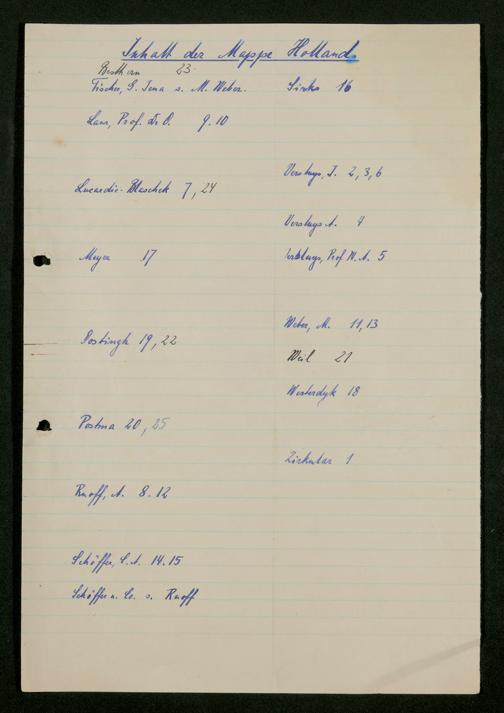 Inhalt der Mappe Holland
Besthorn 23
Fischer, G. Jena s. M. Weber.
Laus, Prof. Dr. O. 9-10
Lucardie-Blaschek 7, 24
Meyer 17
Postingh 19, 22
Postma 20, 25
Ruoff, A. 8-12
Schöffer, C. A. 14.15
Schöffer u. Co. s. Ruoff
Sirks 16
Versluys, J. 2, 3, 6
Versluys A. 4
Versluys, Prof W. A. 5
Weber, M. 11, 13
Weil 21
Westerdyk 18
Zirkular 1